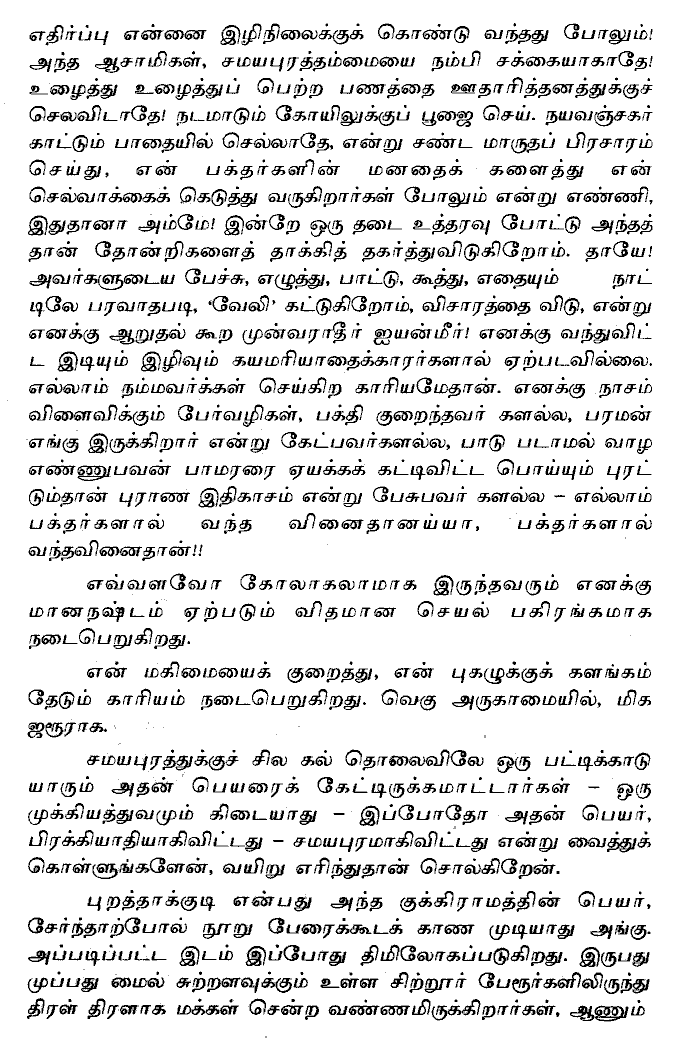 எதிர்ப்பு என்னை இழிநிலைக்குக் கொண்டு வந்தது போலும்!
அந்த ஆசாமிகள், சமயபுரத்தம்மையை நம்பி சக்கையாகாதே!
உழைத்து உழைத்துப் பெற்ற பணத்தை ஊதாரித்தனத்துக்குச்
செலவிடாதே! நடமாடும் கோயிலுக்குப் பூஜை செய். நயவஞ்சகர்
காட்டும் பாதையில் செல்லாதே, என்று சண்ட மாருதப் பிரசாரம்
செய்து, என் பக்தர்களின் மனதைக் களைத்து என்
செல்வாக்கைக் கெடுத்து வருகிறார்கள் போலும் என்று எண்ணி,
இதுதானா அம்மே! இன்றே ஒரு தடை உத்தரவு போட்டு அந்தத்
தான் தோன்றிகளைத் தாக்கித் தகர்த்துவிடுகிறோம். தாயே!
அவர்களுடைய பேச்சு, எழுத்து, பாட்டு, கூத்து, எதையும் நாட்
டிலே பரவாதபடி, ‘வேலி’ கட்டுகிறோம், விசாரத்தை விடு, என்று
எனக்கு ஆறுதல் கூற முன்வராதீர் ஐயன்மீர்! எனக்கு வந்துவிட்
ட இடியும் இழிவும் சுயமரியாதைக்காரர்களால் ஏற்படவில்லை.
எல்லாம் நம்மவர்க்கள் செய்கிற காரியமேதான். எனக்கு நாசம்
விளைவிக்கும் பேர்வழிகள், பக்தி குறைந்தவர் களல்ல, பரமன்
எங்கு இருக்கிறார் என்று கேட்பவர்களல்ல, பாடு படாமல் வாழ
எண்ணுபவன் பாமரரை ஏயக்கக் கட்டிவிட்ட பொய்யும் புரட்
டும்தான் புராண இதிகாசம் என்று பேசுபவர் களல்ல – எல்லாம்
பக்தர்களால் வந்த வினைதானய்யா, பக்தர்களால்
வந்தவினைதான்!!
எவ்வளவோ கோலாகலாமாக இருந்தவரும் எனக்கு
மானநஷ்டம் ஏற்படும் விதமான செயல் பகிரங்கமாக
நடைபெறுகிறது.
என் மகிமையைக் குறைத்து, என் புகழுக்குக் களங்கம்
தேடும் காரியம் நடைபெறுகிறது. வெகு அருகாமையில், மிக
ஜரூராக.
சமயபுரத்துக்குச் சில கல் தொலைவிலே ஒரு பட்டிக்காடு
யாரும் அதன் பெயரைக் கேட்டிருக்கமாட்டார்கள் – ஒரு
முக்கியத்துவமும் கிடையாது – இப்போதோ அதன் பெயர்,
பிரக்கியாதியாகிவிட்டது – சமயபுரமாகிவிட்டது என்று வைத்துக்
கொள்ளுங்களேன், வயிறு எரிந்துதான் சொல்கிறேன்.
புறத்தாக்குடி என்பது அந்த குக்கிராமத்தின் பெயர்,
சேர்ந்தாற்போல் நூறு பேரைக்கூடக் காண முடியாது அங்கு.
அப்படிப்பட்ட இடம் இப்போது திமிலோகப்படுகிறது. இருபது
முப்பது மைல் சுற்றளவுக்கும் உள்ள சிற்றூர் பேரூர்களிலிருந்து
திரள் திரளாக மக்கள் சென்ற வண்ணமிருக்கிறார்கள், ஆணும்